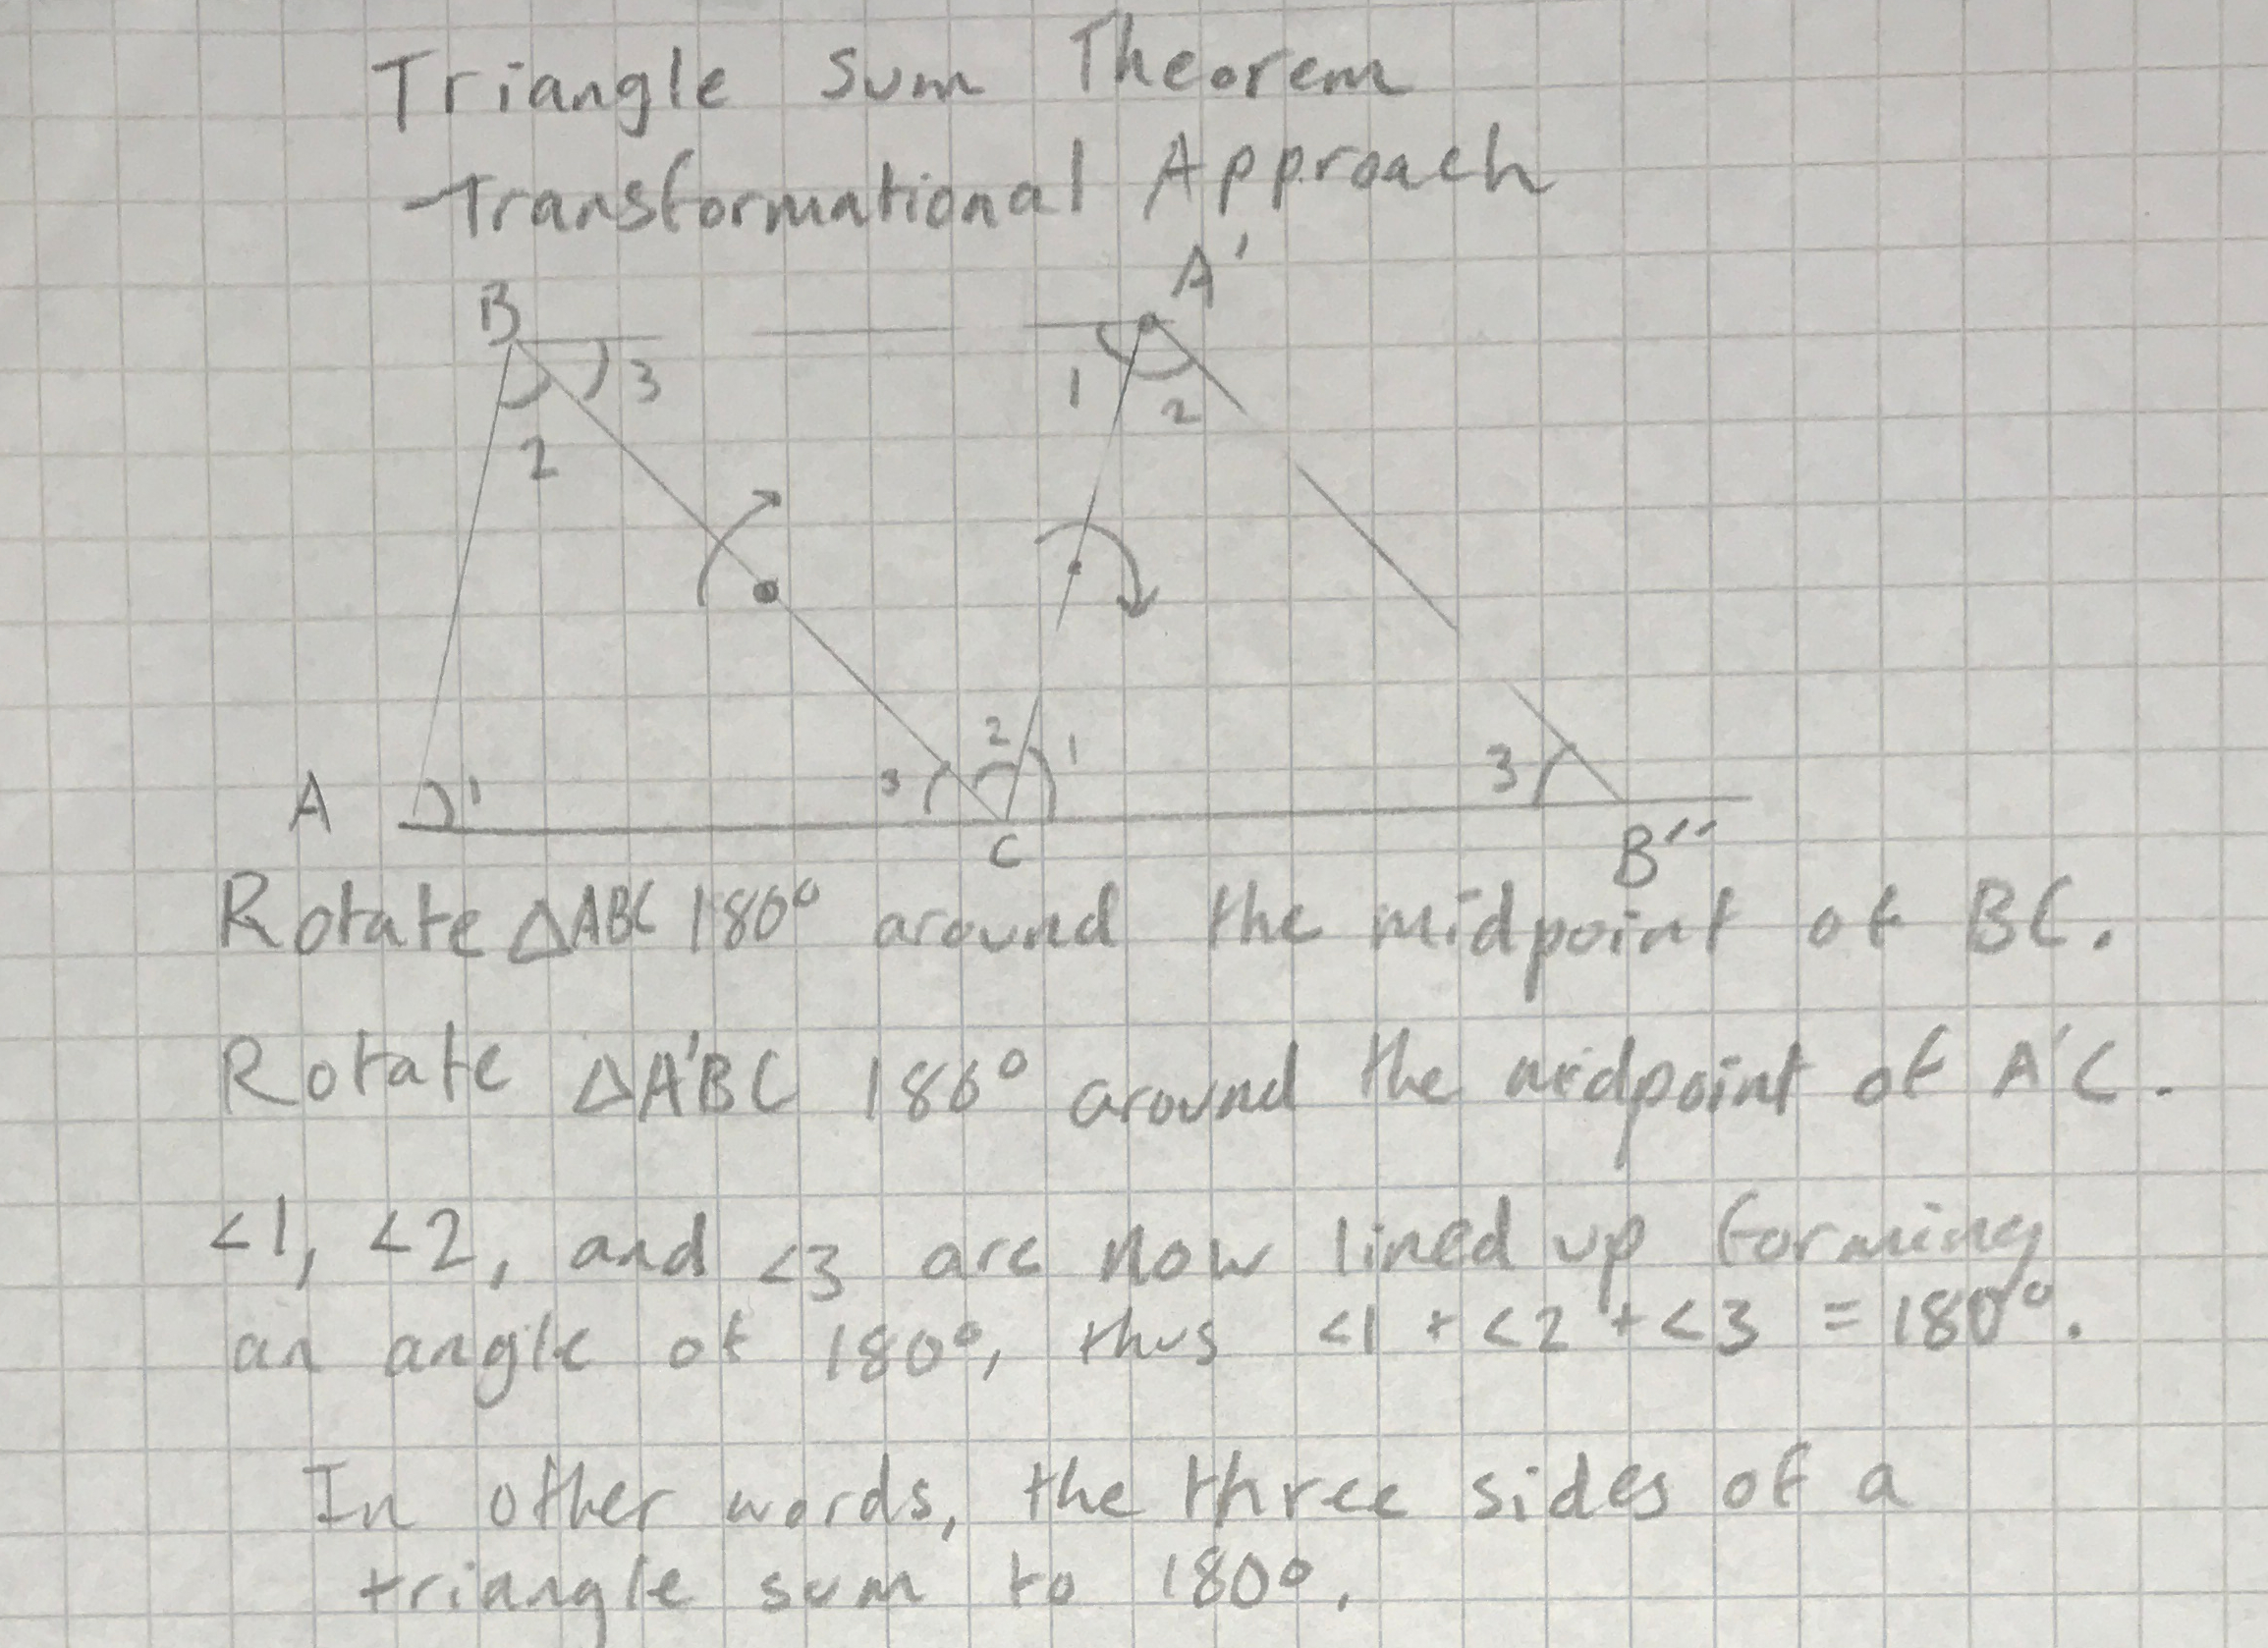 Triangle Sum Theorem
Transformational Approach
B
A'
3
1
2
2
2
1
3
3
A
1
C
B''
Rotate △ABC 180° around the midpoint of BC.
Rotate △A'BC 180° around the midpoint of A'C.
<1, <2, and <3 are now lined up forming
an angle of 180°, thus <1 + <2 + <3 = 180°.
In other words, the three sides of a
triangle sum to 180°.